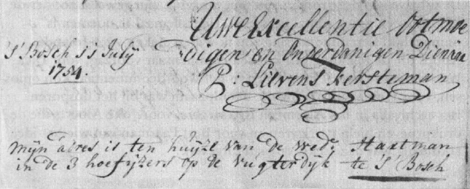 Uwe Excellentie Ootmoe
digen en Onderdanigen Dienaar
P: Lievens Kersteman
S'Bosch 11 July
1754.
Mijn adres is ten huijze van de wed: Haatman
in de 3 hoefijzers op de vugterdyk te S'Bosch